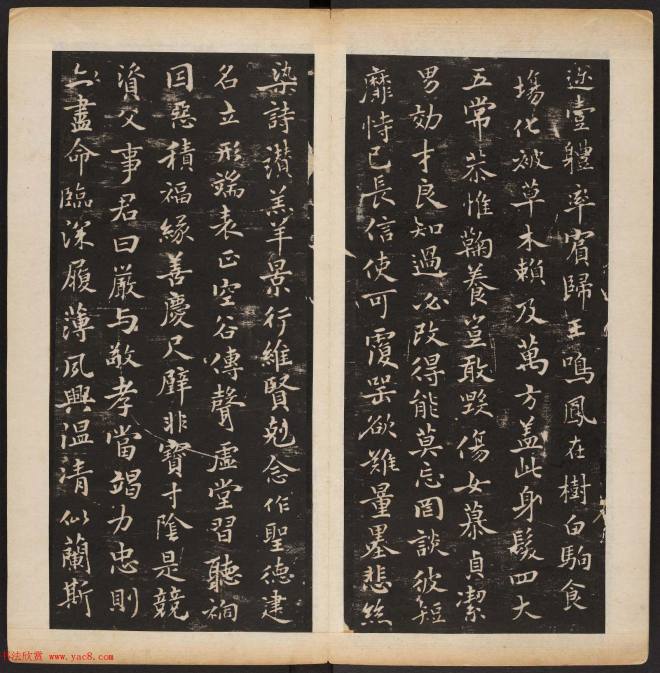 迩壹體率賓歸王鳴鳳在樹白駒食
場化被草木賴及萬方盖此身髮四大
五常恭惟鞠養豈敢毀傷女慕貞潔
男効才良知過必改得能莫忘罔談彼短
靡恃己長信使可覆器欲難量墨悲絲
染詩讚羔羊景行維賢剋念作聖德建
名立形端表正空谷傳聲虛堂習聽禍
因惡積福緣善慶尺璧非寶寸陰是競
資父事君曰嚴与敬孝當竭力忠則
盡命臨深履薄夙興溫清似蘭斯
书法欣赏 www.yac8.com